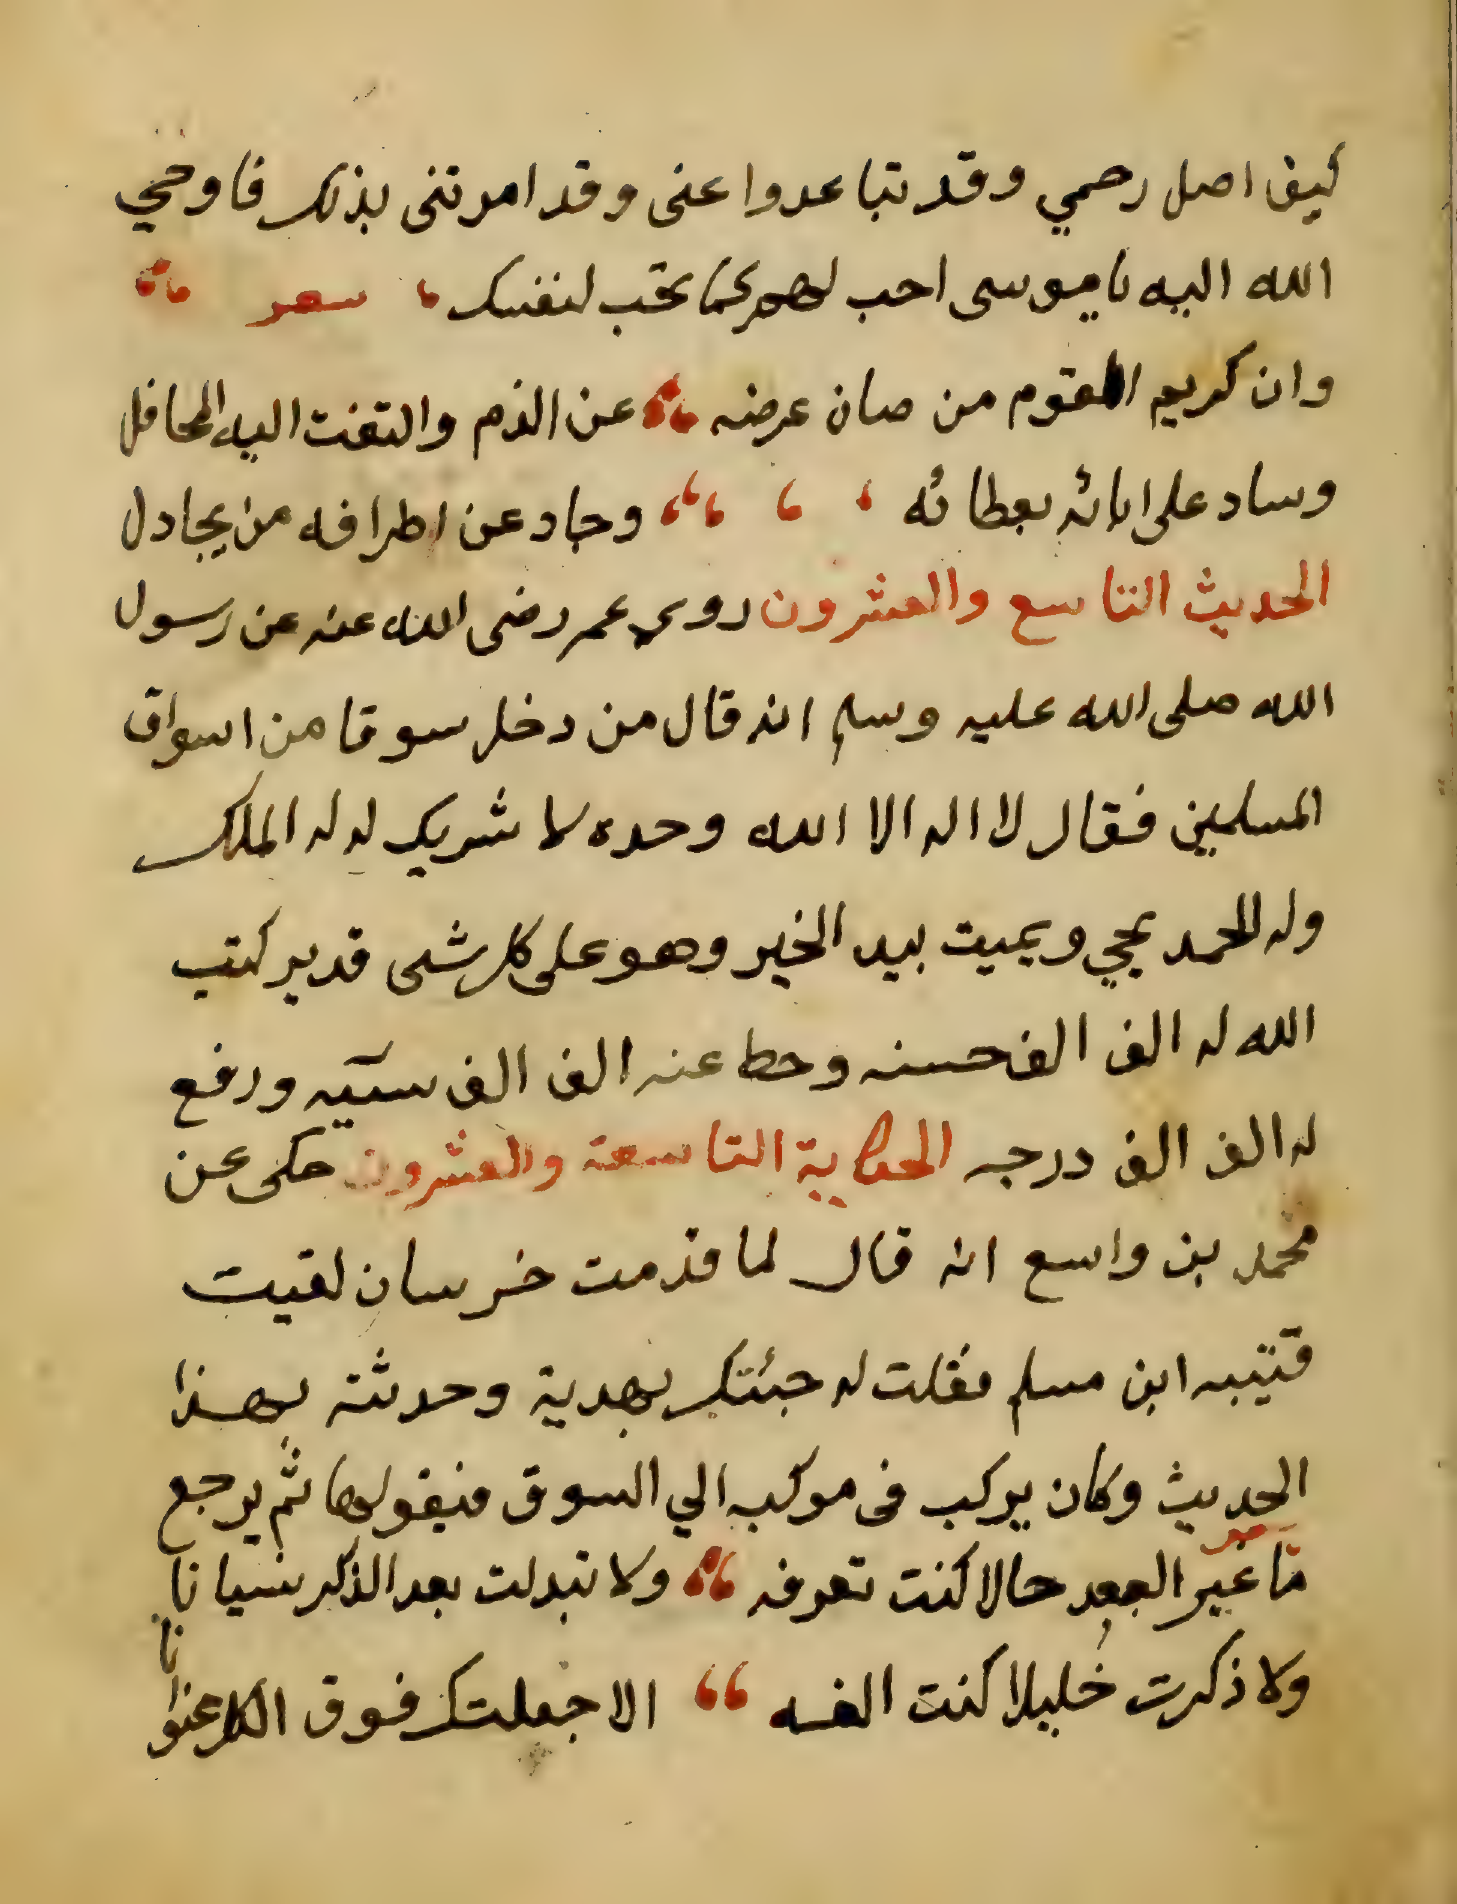 كيف اصل رحمي وقد تباعدوا عنى وقد امرتنى بذلك فاوحي
الله اليه يا موسى احب لهم كما تحب لنفسك شعر
وان كريم القوم من صان عرضه عن الذم والتفت اليه المحافل
وساد على ابائه بعطائه وجاد عن اطرافه من يجادل
الحديث التاسع والعشرون روي عمر رضى الله عنه عن رسول
الله صلى الله عليه وسلم انه قال من دخل سوقا من اسواق
المسلمين فقال لا اله الا الله وحده لا شريك له له الملك
وله الحمد يحيي ويميت بيد الخير وهو على كل شى قدير كتب
الله له الف الف حسنه وحط عنه الف الف سيئه ورفع
له الف الف درجه الحكاية التاسعة والعشرون حكى عن
محمد بن واسع انه قال لما قدمت خرسان لقيت
قتيبه ابن مسلم فقلت له جئتك بهدية وحدثته بهذا
الحديث وكان يركب فى موكبه الي السوق فيقولها ثم يرجع
شعر
ما غير البعد حالا كنت تعرفه ولا تبدلت بعد الذكر نسيانا
ولا ذكرت خليلا كنت الفه الا جعلتك فوق الكل عنوانا